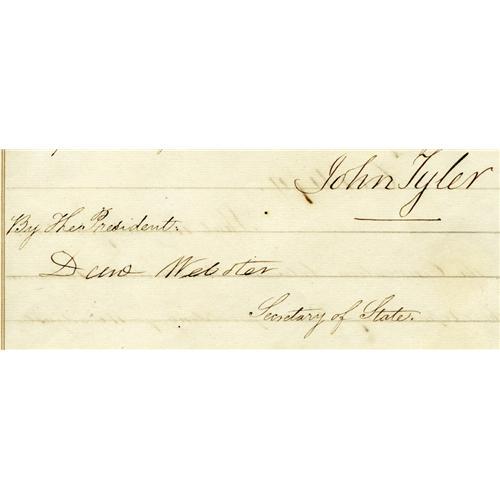 John Tyler
By the President.
Danl Webster
Secretary of State.